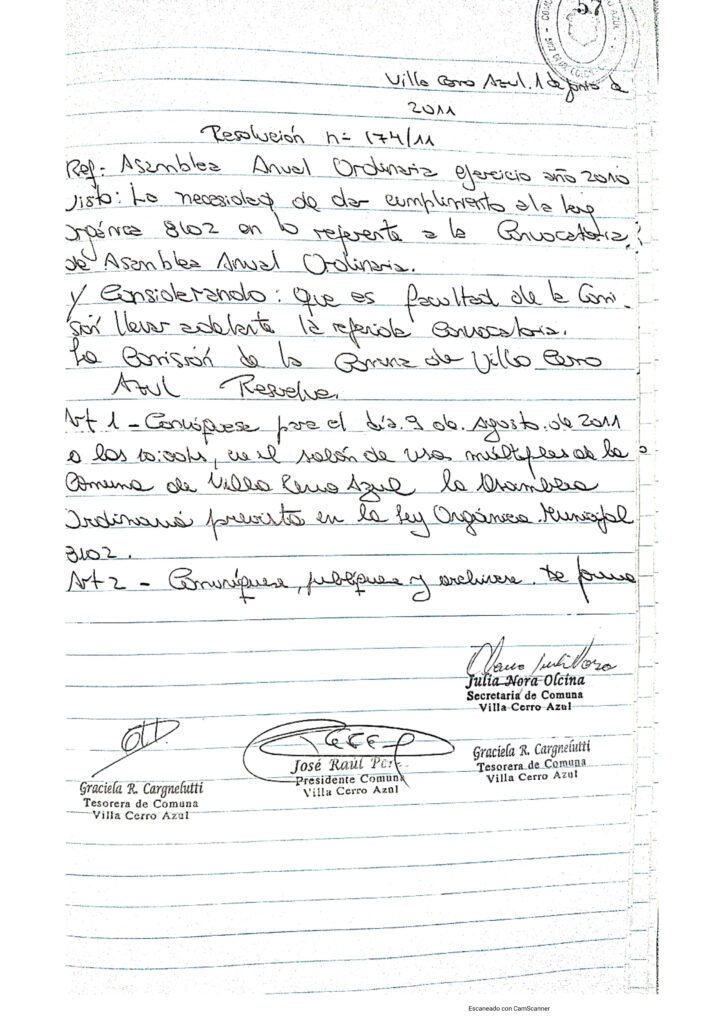 57
Villa Cerro Azul. 1 de Junio de
2011
Resolución n= 174/11
Ref- Asamblea Anual Ordinaria ejercicio año 2010
Visto: La necesidad de dar cumplimiento a la ley
orgánica 8102 en lo referente a la Convocatoria
de Asamblea Anual Ordinaria.
y Considerando: Que es facultad de la Comi-
sión llevar adelante la referida Convocatoria.
La Comisión de la Comuna de Villa Cerro
Azul Resuelve.
Art 1 - Convóquese para el día 9 de Agosto de 2011
a las 10:00hs, en el salón de usos múltiples de la
Comuna de Villa Cerro Azul la Asamblea
Ordinaria prevista en la Ley Orgánica Municipal
8102.
Art 2 - Comuníquese, publíquese y archívese. De forma
Julia Nora Olcina
Secretaria de Comuna
Villa Cerro Azul
Graciela R. Cargnelutti
Tesorera de Comuna
Villa Cerro Azul
José Raúl
Presidente Comuna
Villa Cerro Azul
Graciela R. Cargnelutti
Tesorera de Comuna
Villa Cerro Azul
Escaneado con CamScanner